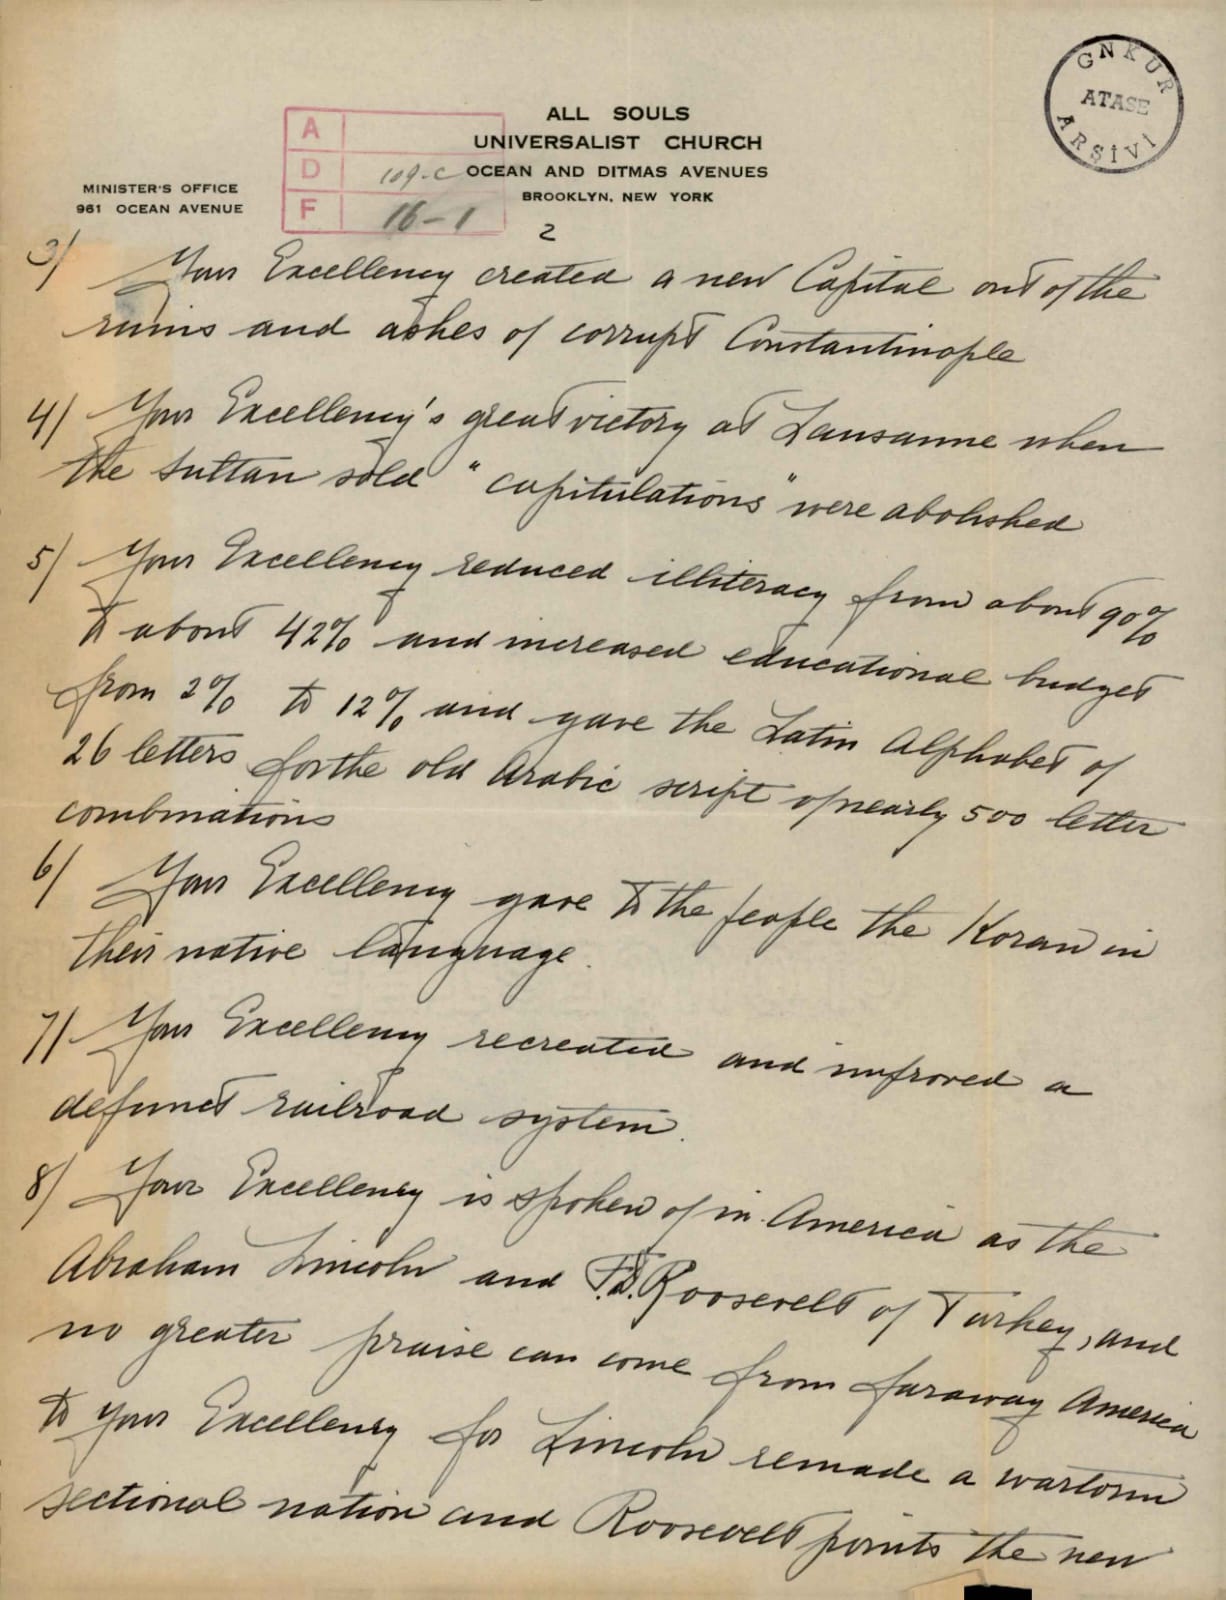 GNKUR
ATASE
ARŞİVİ
ALL SOULS
UNIVERSALIST CHURCH
OCEAN AND DITMAS AVENUES
BROOKLYN, NEW YORK
MINISTER'S OFFICE
961 OCEAN AVENUE
A
D 109-C
F 16-1
2
3/ Your Excellency created a new Capital out of the
ruins and ashes of corrupt Constantinople
4/ Your Excellency's great victory at Lausanne when
the sultan sold "capitulations" were abolished
5/ Your Excellency reduced illiteracy from about 90%
to about 42% and increased educational budget
from 2% to 12% and gave the Latin Alphabet of
26 letters for the old Arabic script of nearly 500 letter
combinations
6/ Your Excellency gave to the people the Koran in
their native language.
7/ Your Excellency recreated and improved a
defunct railroad system.
8/ Your Excellency is spoken of in America as the
Abraham Lincoln and F.D. Roosevelt of Turkey, and
no greater praise can come from faraway America
to your Excellency for Lincoln remade a wartorn
sectional nation and Roosevelt points the new